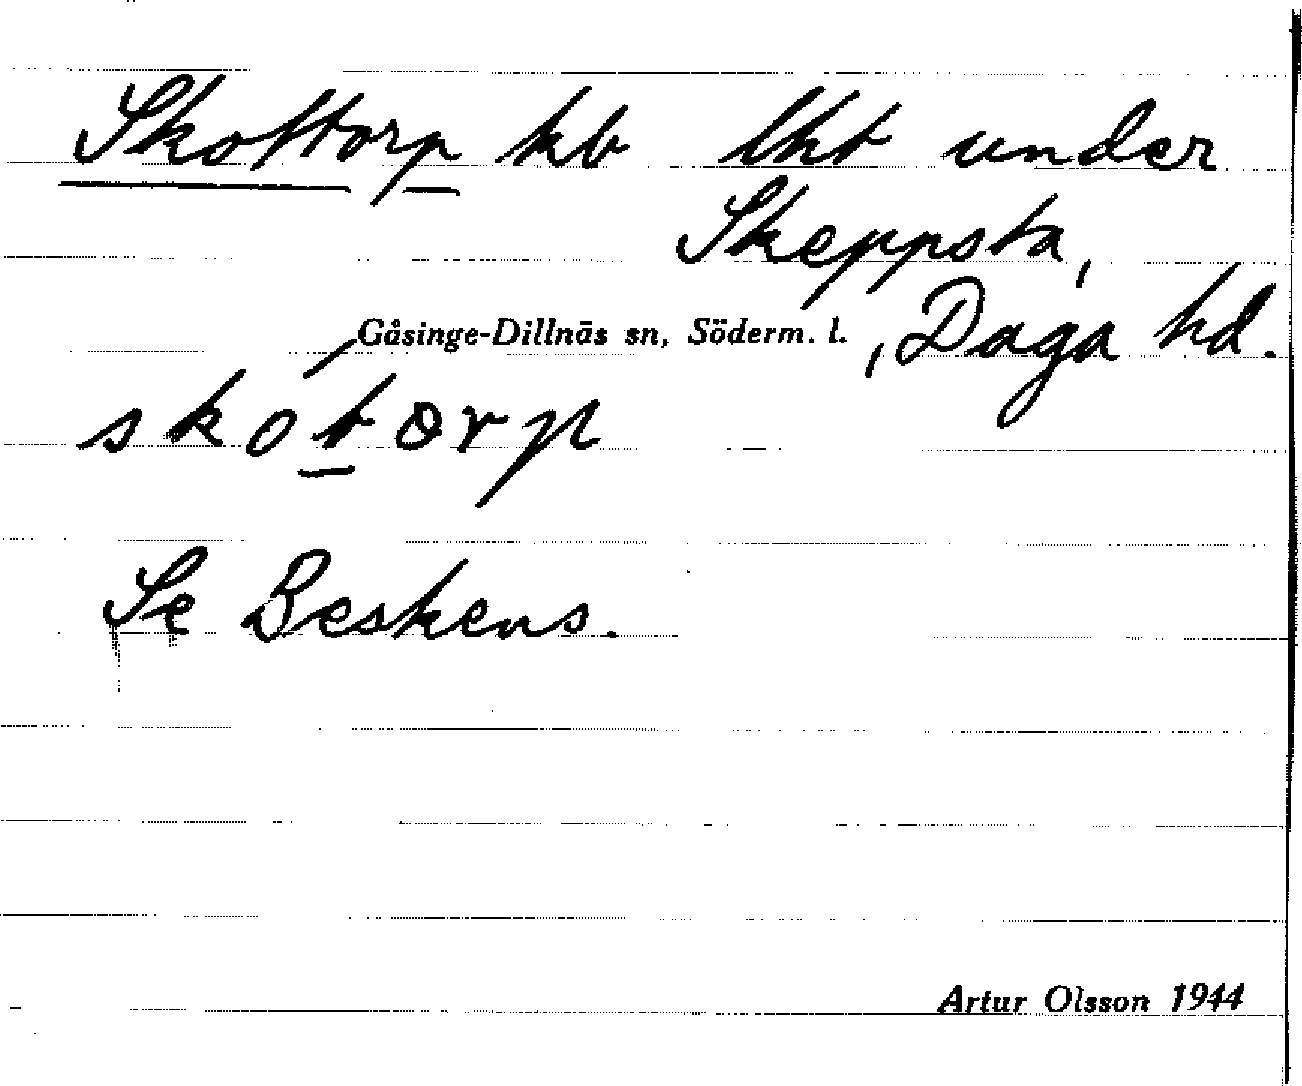 Skottorp kb lht under
Skeppsta,
Gåsinge-Dillnäs sn, Söderm. l. , Daga hd.
skót̲orp
Se Beskens.
Artur Olsson 1944